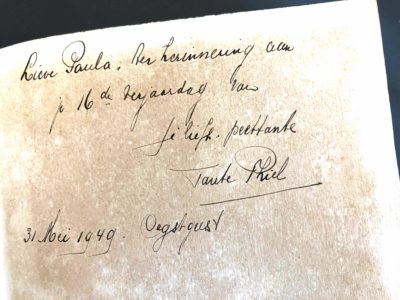 Lieve Paula. Ter herinnering aan
je 16de Verjaardag van
je liefh. peettante
Tante Phiel
31 Mei 1949. Oegstgeest